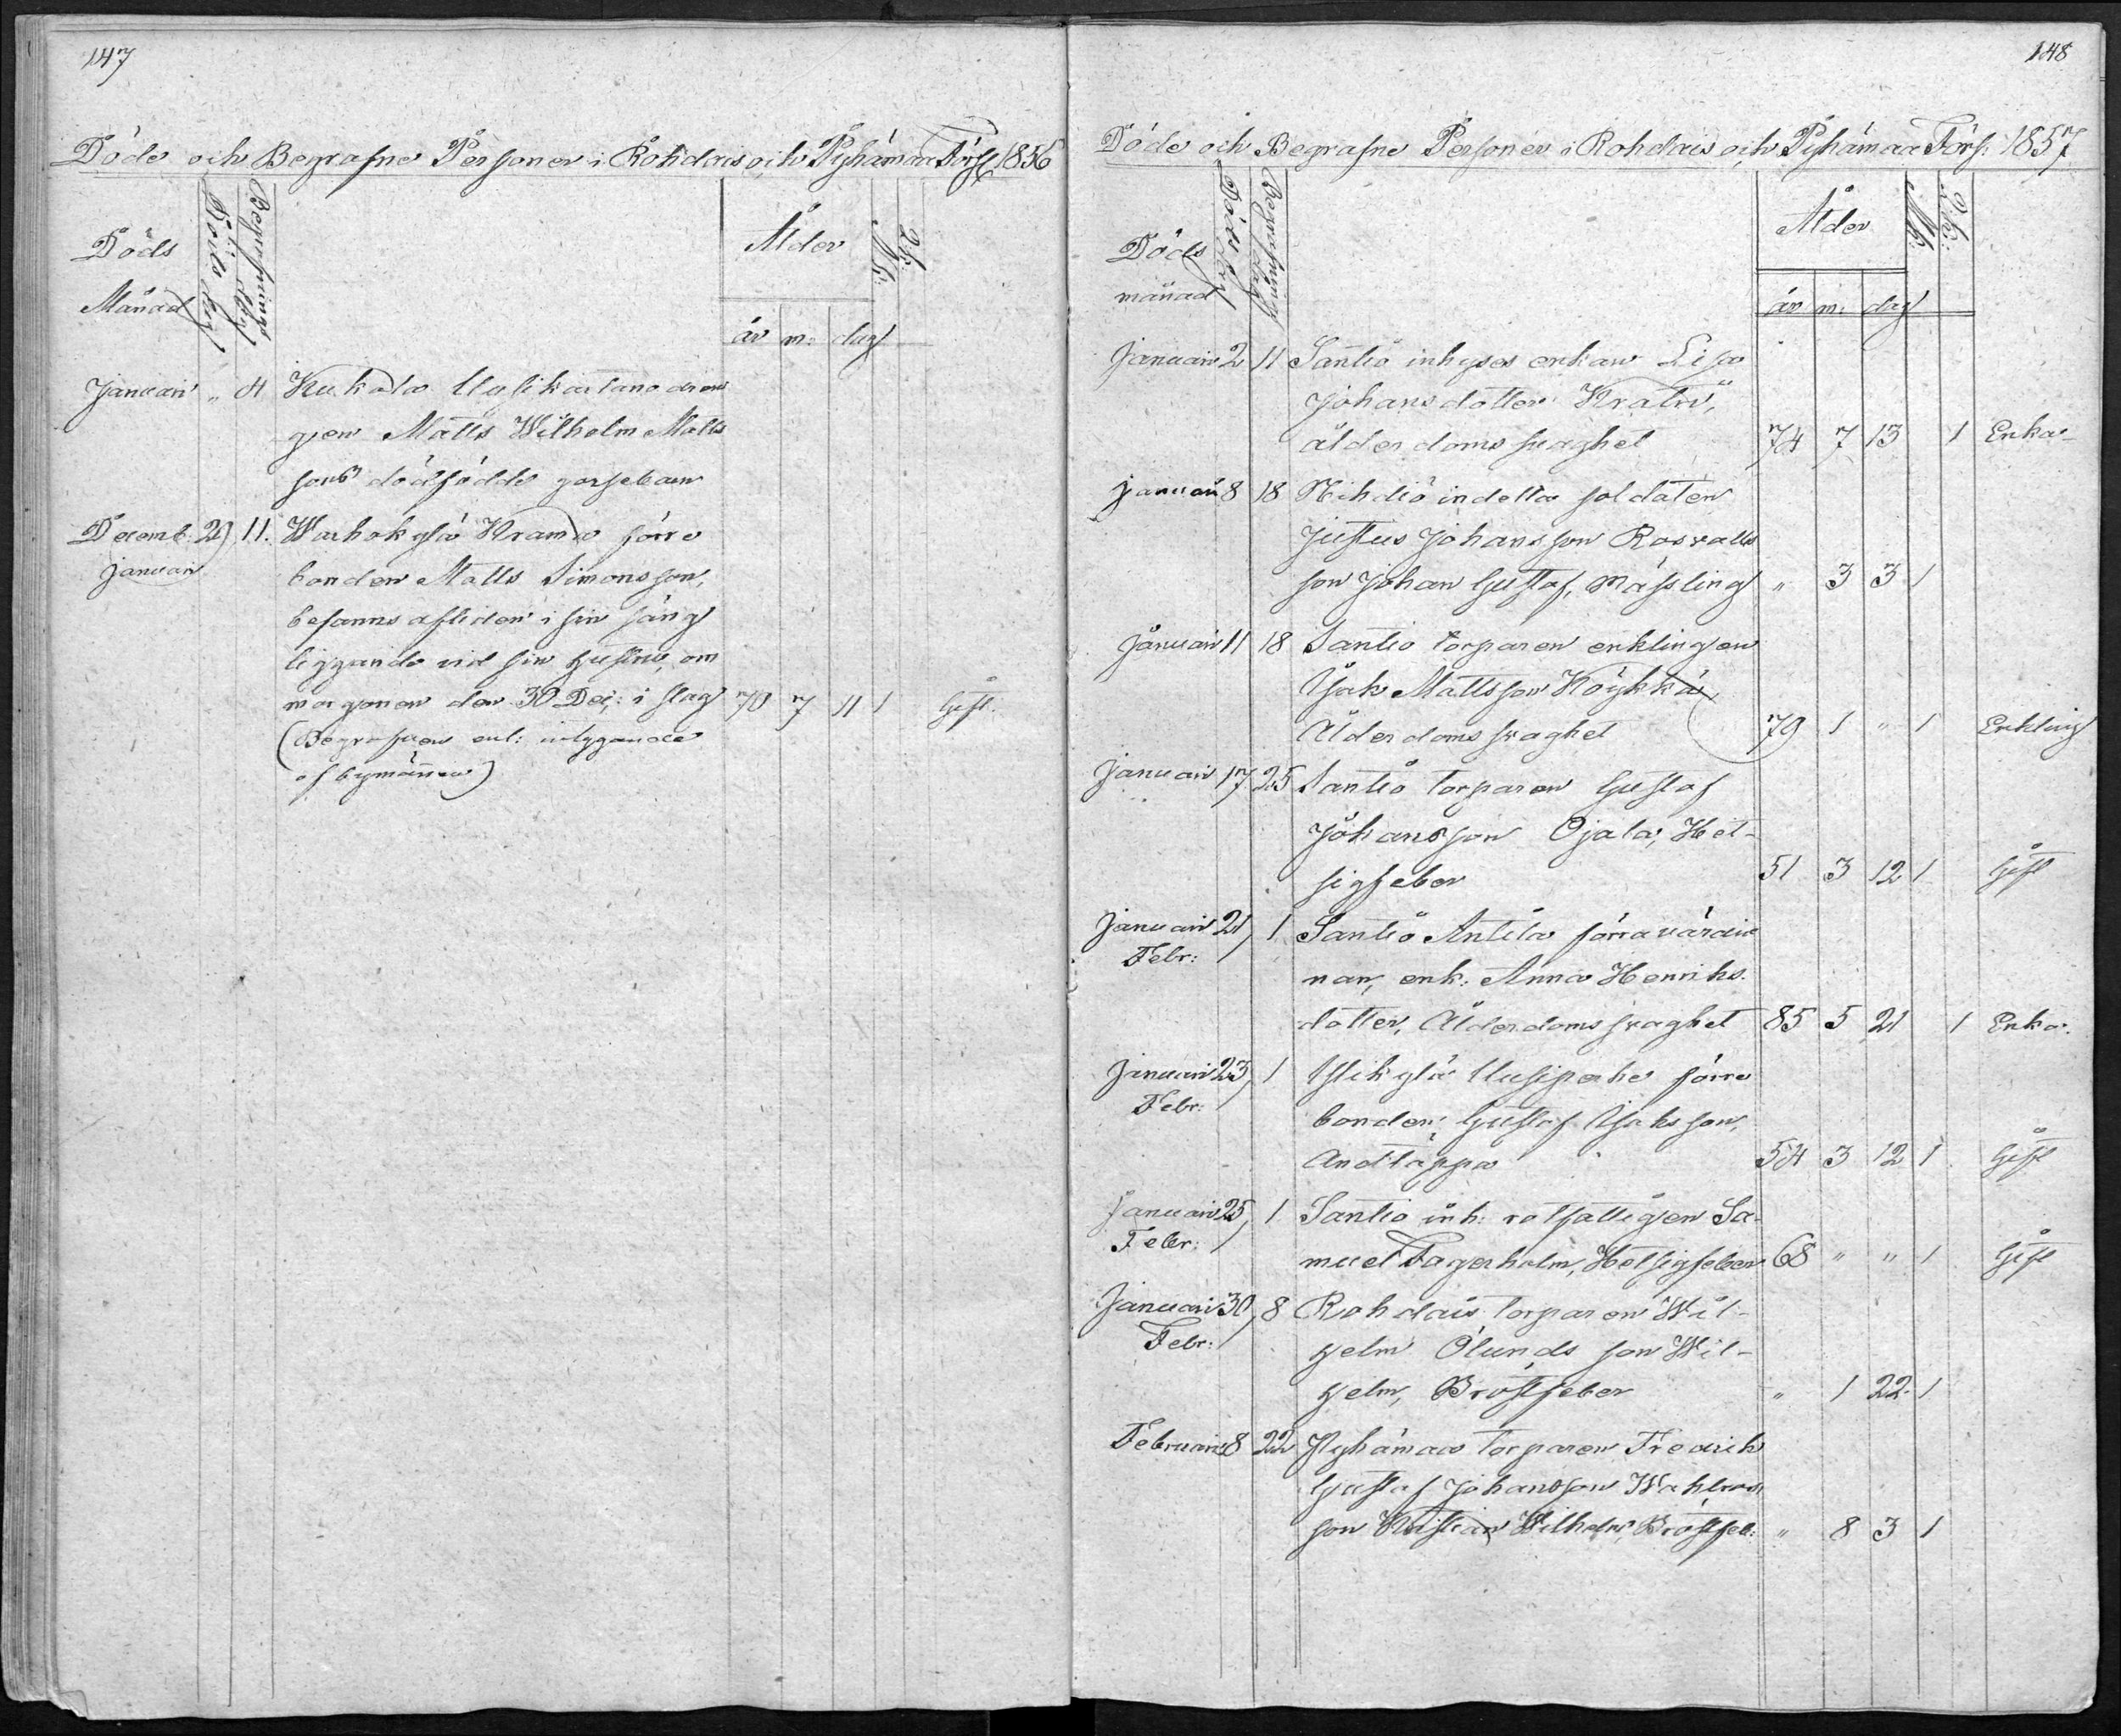 147
Döde och Begrafne Personer i Rohdais och Pyhämaa Förs: 1856
Döds
Månad
Döds dag
Begrafnings dag
Ålder
år m: dag
Mk:
Qk:
Januari " 4 Kukola Uglikartano drän
gen Matts Wilhelm Matts
sons dödfödde gossebarn
Decemb. 29 11. Warhokylä Kramo förre
Januari bonden Matts Simonsson,
befanns afliden i sin säng
liggande vid sin hustru, om
morgonen den 30 Dec: i slag 70 7 11 1 Gift.
(Begrafven enl: intygande
af bymännen)
148
Döde och Begrafne Personer i Rohdais och Pyhämaa Förs: 1857
Döds
månad
Döds dag
Begrafnings dag
Ålder
år m: dag
Mk:
Qk:
Januari 2 11 Santio inhyses enkan Lisa
Johansdotter Kratri,
ålderdomssvaghet 74 7 13 1 Enka
Januari 8 18 Nihdiö indelta soldaten
Justus Johansson Rosvalls
son Johan Gustaf, Mässling " 3 3 1
Januari 11 18 Santio torparen enklingen
Isak Mattsson Köykkä,
Ålderdomssvaghet 79 1 " 1 Enkling
Januari 17 25 Santio torparen Gustaf
Johansson Ojala, Het-
sigfeber 51 3 12 1 Gift
Januari 21 1 Santio Antila förra värdin
Febr: nan, enk. Anna Henriks
dotter, Ålderdomssvaghet 85 5 21 1 Enka.
Januari 23 1 Ylikylä Uusiperhe förre
Febr: bonden Gustaf Isaksson,
Andtäppa 54 3 12 1 Gift
Januari 25 1 Santio inh: rotfattigen Sa-
Febr: muel Fagerholm, Hetsigfeber 68 " " 1 Gift
Januari 30 8 Rohdais torparen Wil-
Febr: helm Ölunds son Wil-
helm, Bröstfeber " 1 22 1
Februari 8 22 Pyhämaa torparen Fredrik
Gustaf Johansson Wahlroos
son Kristian Wilhelm, Bröstfeb: " 8 3 1